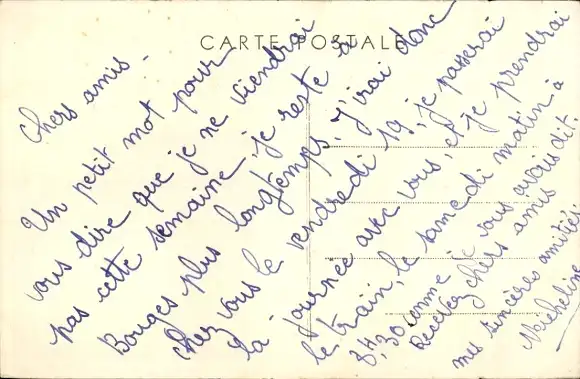 CARTE POSTALE
Chers amis -
Un petit mot pour
vous dire que je ne viendrai
pas cette semaine, je reste à
Bouaes plus longtemps. J'irai donc
chez vous le vendredi 19, je passerai
la journée avec vous, et je prendrai
le train, le samedi matin à
8H,30 comme je vous avais dit.
Recevez chers amis
mes sincères amitiés
Micheline